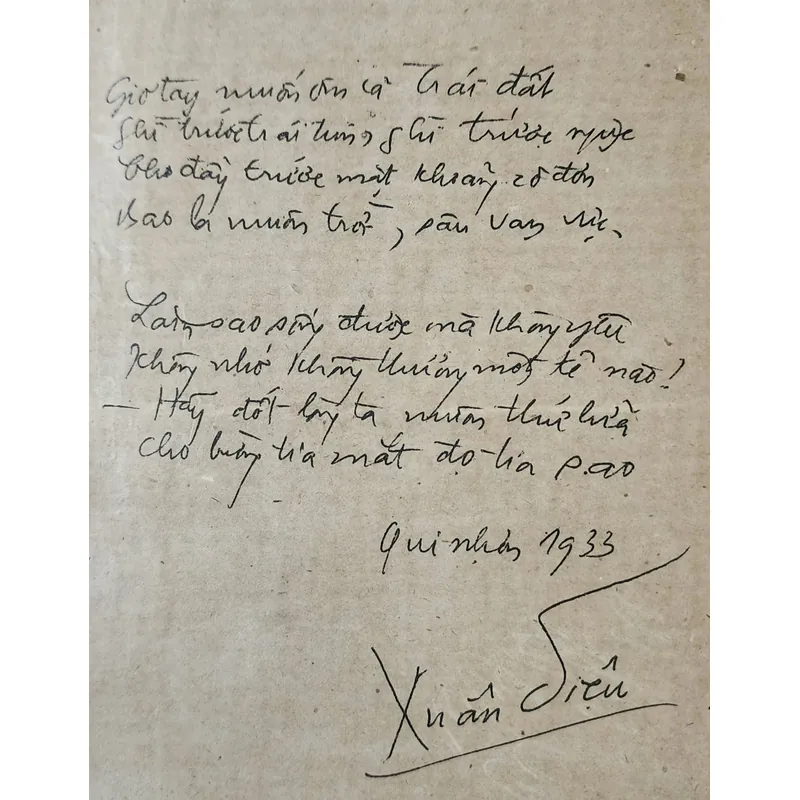 Giơ tay muốn ôm cả trái đất
Ghì trước trái tim, ghì trước ngực
Cho đầy trước mặt khoảng cô đơn
Bao la muôn trở, sâu vạn vực.
Làm sao sống được mà không yêu
Không nhớ không thương một kẻ nào!
- Hãy đốt lòng ta muôn thứ lửa
Cho bừng tia mắt đọ tia sao
Qui nhơn 1933
Xuân Diệu